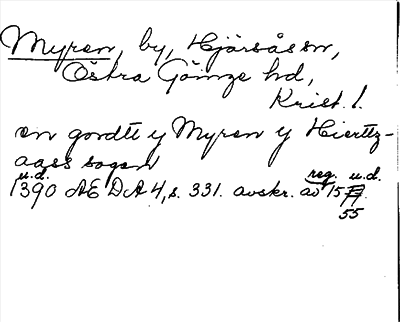 Myren, by, Hjärsås sn,
Östra Göinge hd,
Krist. l.
en gordtt y Myren y Hierttz-
aass sogen
u.d. reg. u.d.
1390 AEDA 4, s. 331. avskr. av 15
55